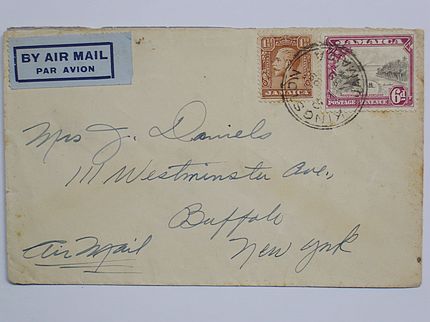 BY AIR MAIL
PAR AVION
1½d
JAMAICA
JAMAICA
POSTAGE & REVENUE
6d
KINGS
Mrs J. Daniels
111 Westminster Ave.,
Buffalo
New York
Air Mail